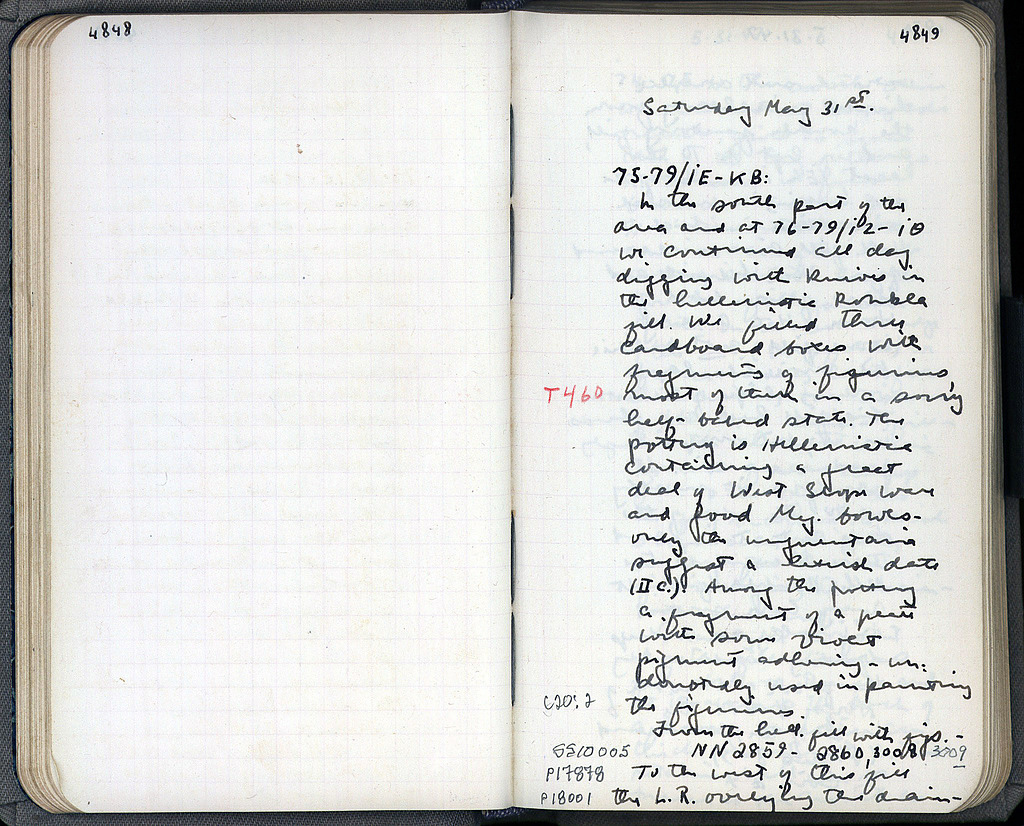 4848
4849
Saturday May 31st.
75-79/ΙΕ-ΚΒ:
In the south part of the
area and at 76-79/ιζ-ιθ
we continued all day
digging with knives in
the hellenistic Koubla
fill. We filled three
cardboard boxes with
fragments of figurines,
T460 most of them in a sorry
half-baked state. The
pottery is Hellenistic
containing a great
deal of West Slope ware
and good Meg. bowls-
only the unguentaria
suggest a latish date
(II c.). Among the pottery
a fragment of a plate
with some violet
pigment adhering - un-
doubtedly used in painting
the figurines.
From the hell. fill with figs. -
SS10005 NN 2859- 2860, 3008, 3009
P17878 To the west of this fill
P18001 the L.R. overlying the drain-